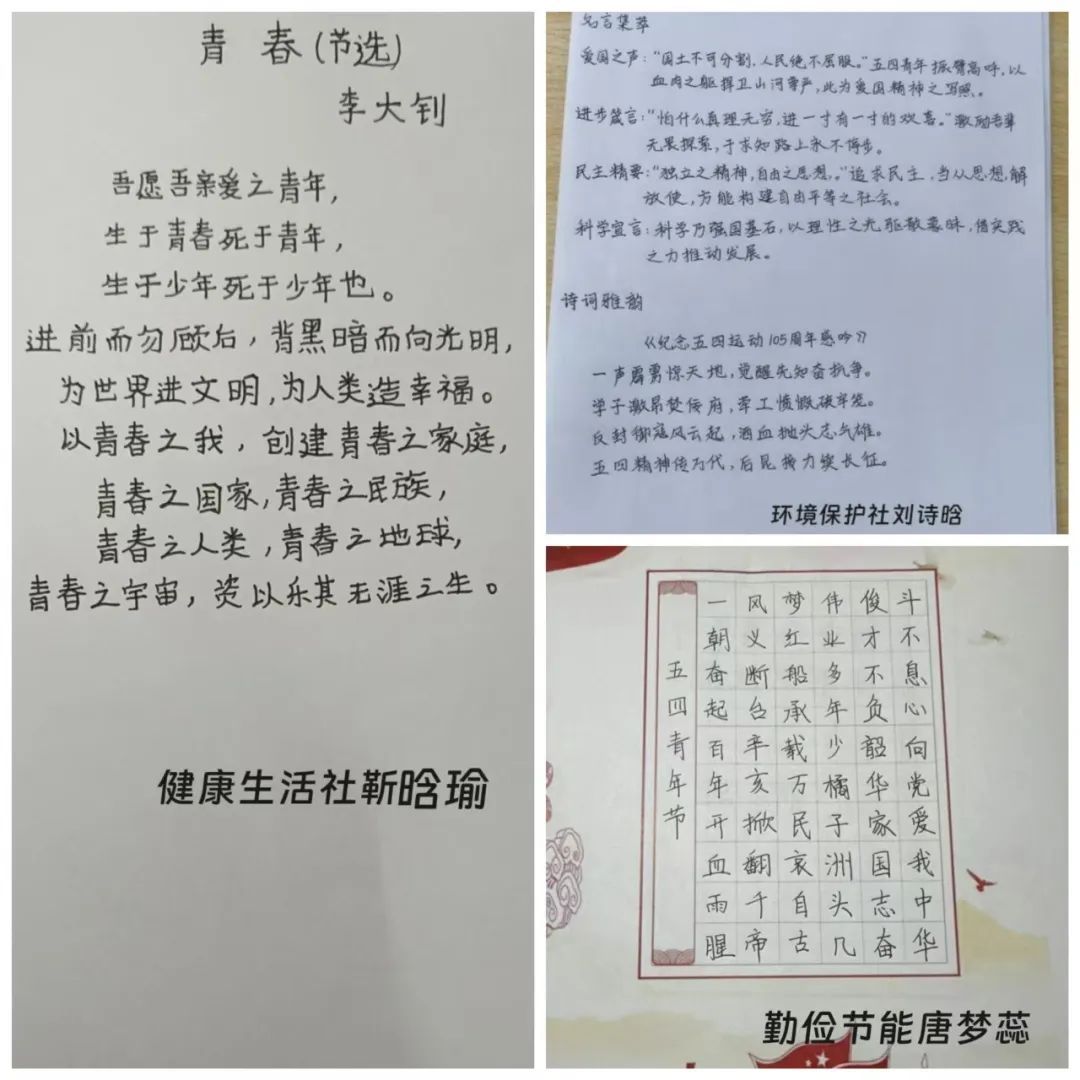 青春(节选)
李大钊
吾愿吾亲爱之青年,
生于青春死于青年,
生于少年死于少年也。
进前而勿顾后,背黑暗而向光明,
为世界进文明,为人类造幸福。
以青春之我,创建青春之家庭,
青春之国家,青春之民族,
青春之人类,青春之地球,
青春之宇宙,资以乐其无涯之生。
健康生活社靳晗瑜
名言集萃
爱国之声:“国土不可分割,人民绝不屈服。”五四青年振臂高呼,以
血肉之躯捍卫山河尊严,此为爱国精神之写照。
进步箴言:“怕什么真理无穷,进一寸有一寸的欢喜。”激励吾辈
无果探索,于求知路上永不停步。
民主精要:“独立之精神,自由之思想。”追求民主,当从思想解
放使,方能构建自由平等之社会。
科学宣言:科学乃强国基石,以理性之光驱散蒙昧,借实践
之力推动发展。
诗词雅韵
《纪念五四运动105周年感吟》
一声霹雳惊天地,觉醒先知奋抗争。
学子激昂焚佞府,工愤慨破牢笼。
反封御风云起,洒血抛头志气雄。
五四精神传万代,后昆接力续长征。
环境保护社刘诗晗
五四青年节
一朝奋起百年开血雨腥
风义断台辛亥掀翻千帝
梦红船承载万民哀自古
伟业多年少橘子洲头几
俊才不负韶华家国志奋
斗不息心向党爱我中华
勤俭节能唐梦蕊